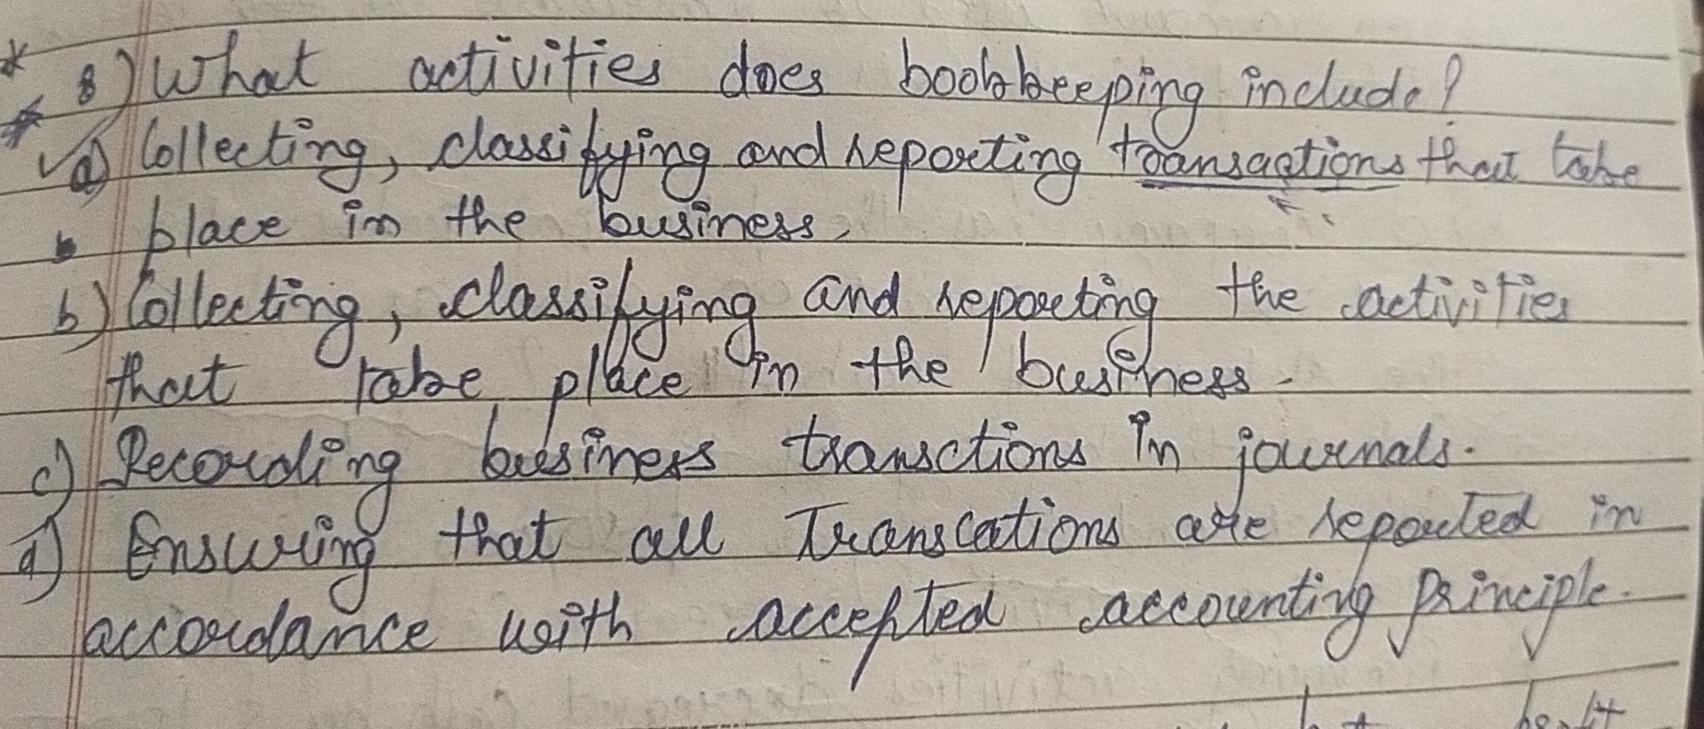 * 8) What activities does bookkeeping include?
* ✓a) Collecting, classifying and reporting transactions that take
place in the business,
b) Collecting, classifying and reporting the activities
that take place in the business.
c) Recording business transctions in journals.
d) Ensuring that all Transcations are reported in
accordance with accepted accounting principle.